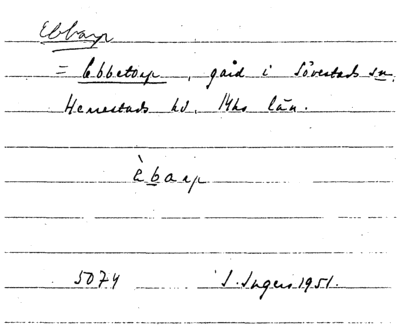 Ebbarp
= Ebbetorp, gård i Sövestads sn.
Herrestads hd. Mhs län.
Èbarp
5074 S. Ingers 1951.